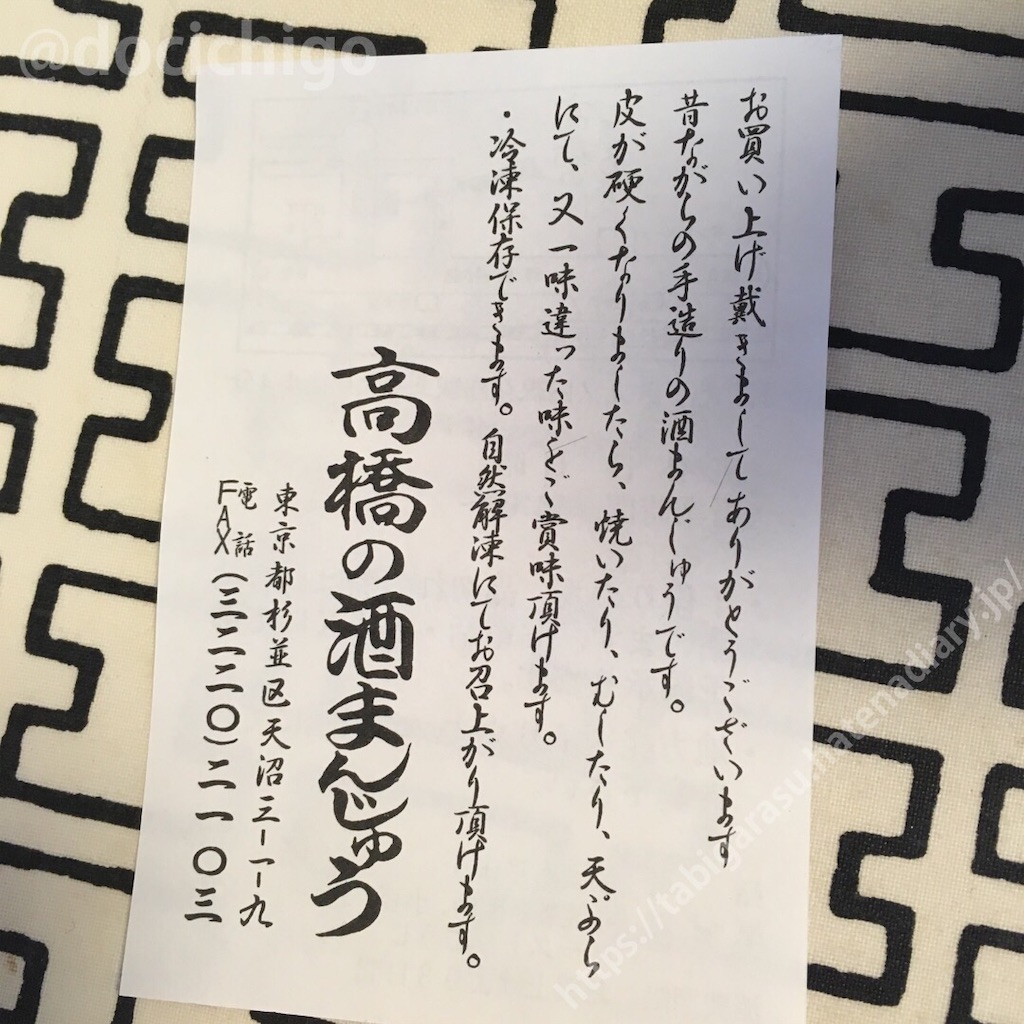 お買い上げ戴きましてありがとうございます
昔ながらの手造りの酒まんじゅうです。
皮が硬くなりましたら、焼いたり、むしたり、天ぷら
にて、又一味違った味をご賞味頂けます。
・冷凍保存できます。自然解凍にてお召上がり頂けます。
高橋の酒まんじゅう
東京都杉並区天沼三ー一ー九
電話
FAX
(三二二〇)二一〇三
@docichigo
https://tabigarasu.hatenadiary.jp/